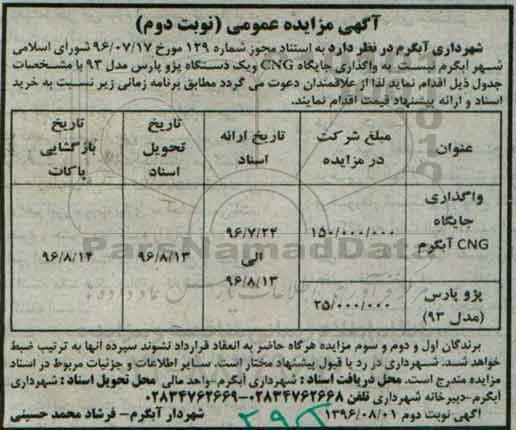 آگهی مزایده عمومی (نوبت دوم)
شهرداری آبگرم در نظر دارد به استناد مجوز شماره ۱۲۹ مورخ ۹۶/۰۷/۱۷ شورای اسلامی
شهر آبگرم نیست به واگذاری جایگاه CNG ویک دستگاه پژو پارس مدل ۹۳ با مشخصات
جدول ذیل اقدام نماید لذا از علاقمندان دعوت می گردد مطابق برنامه زمانی زیر نسبت به خرید
اسناد و ارائه پیشنهاد قیمت اقدام نمایند.
عنوان
مبلغ شرکت در مزایده
تاریخ ارائه اسناد
تاریخ تحویل اسناد
تاریخ بازگشایی پاکات
واگذاری جایگاه CNG آبگرم
۱۵۰/۰۰۰/۰۰۰
۹۶/۷/۲۴ الی ۹۶/۸/۱۳
۹۶/۸/۱۳
۹۶/۸/۱۴
پژو پارس (مدل ۹۳)
۲۵/۰۰۰/۰۰۰
ParsNamadData
مرکز فرآوری اطلاعات پارس نماد داده ها
برندگان اول و دوم و سوم مزایده هرگاه حاضر به انعقاد قرارداد نشوند سپرده آنها به ترتیب ضبط
خواهد شد. شهرداری در رد یا قبول پیشنهاد مختار است. سایر اطلاعات و جزئیات مربوط در اسناد
مزایده مندرج است. محل دریافت اسناد : شهرداری آبگرم-واحد مالی محل تحویل اسناد : شهرداری
آبگرم-دبیرخانه شهرداری تلفن ۰۲۸۳۴۷۶۲۶۶۸-۰۲۸۳۴۷۶۲۶۶۹
آگهی نوبت دوم ۱۳۹۶/۰۸/۰۱
شهردار آبگرم- فرشاد محمد حسینی